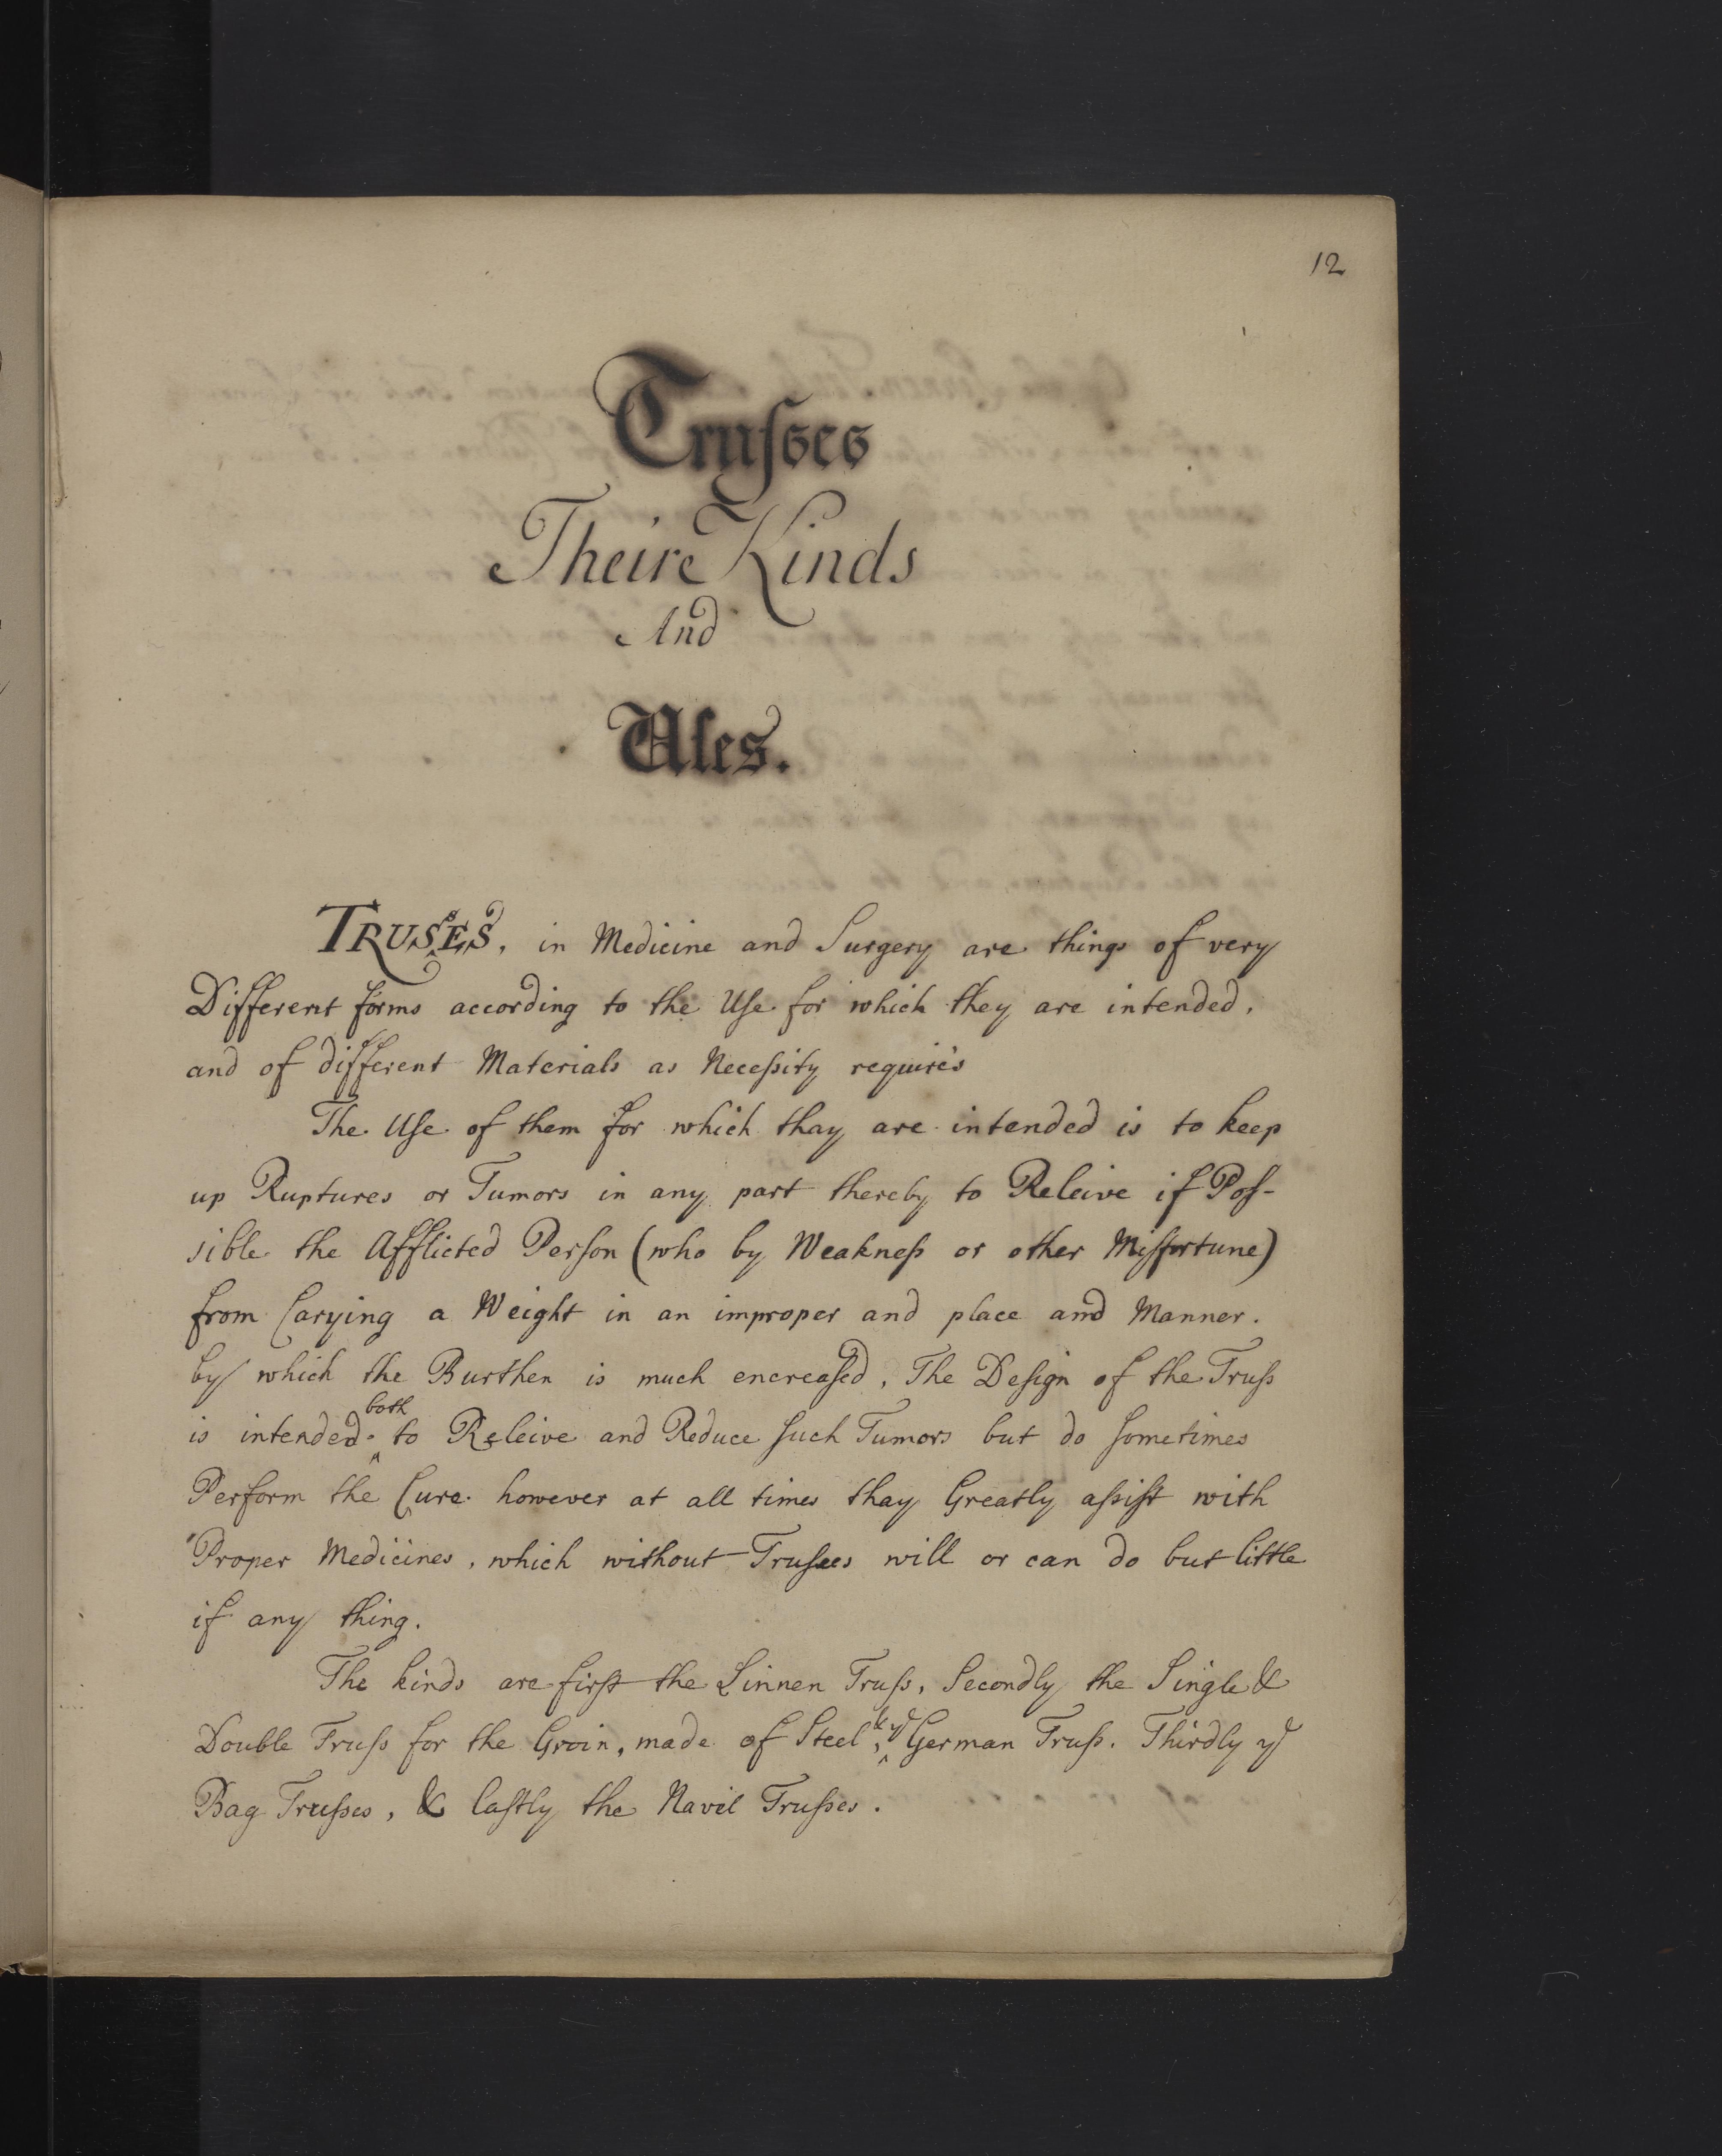 12
Trusses
Their Kinds
And
Uses.
TRUSsES, in Medicine and Surgery are things of very
Different forms according to the Use for which they are intended,
and of different Materials as Necessity require's
The Use of them for which thay are intended is to keep
up Ruptures or Tumors in any part thereby to Releive if Pos-
sible the Afflicted Person (who by Weakness or other Misfortune)
from Carying a Weight in an improper and place and Manner.
by which the Burthen is much encreased, The Design of the Truss
is intended both to Releive and Reduce such Tumors but do sometimes
Perform the Cure. however at all times thay Greatly assist with
Proper Medicines, which without Trusses will or can do but little
if any thing.
The kinds are first the Linnen Truss, Secondly the Single &
Double Truss for the Groin, made of Steel, & ye German Truss. Thirdly ye
Bag Trusses, & lastly the Navil Trusses.